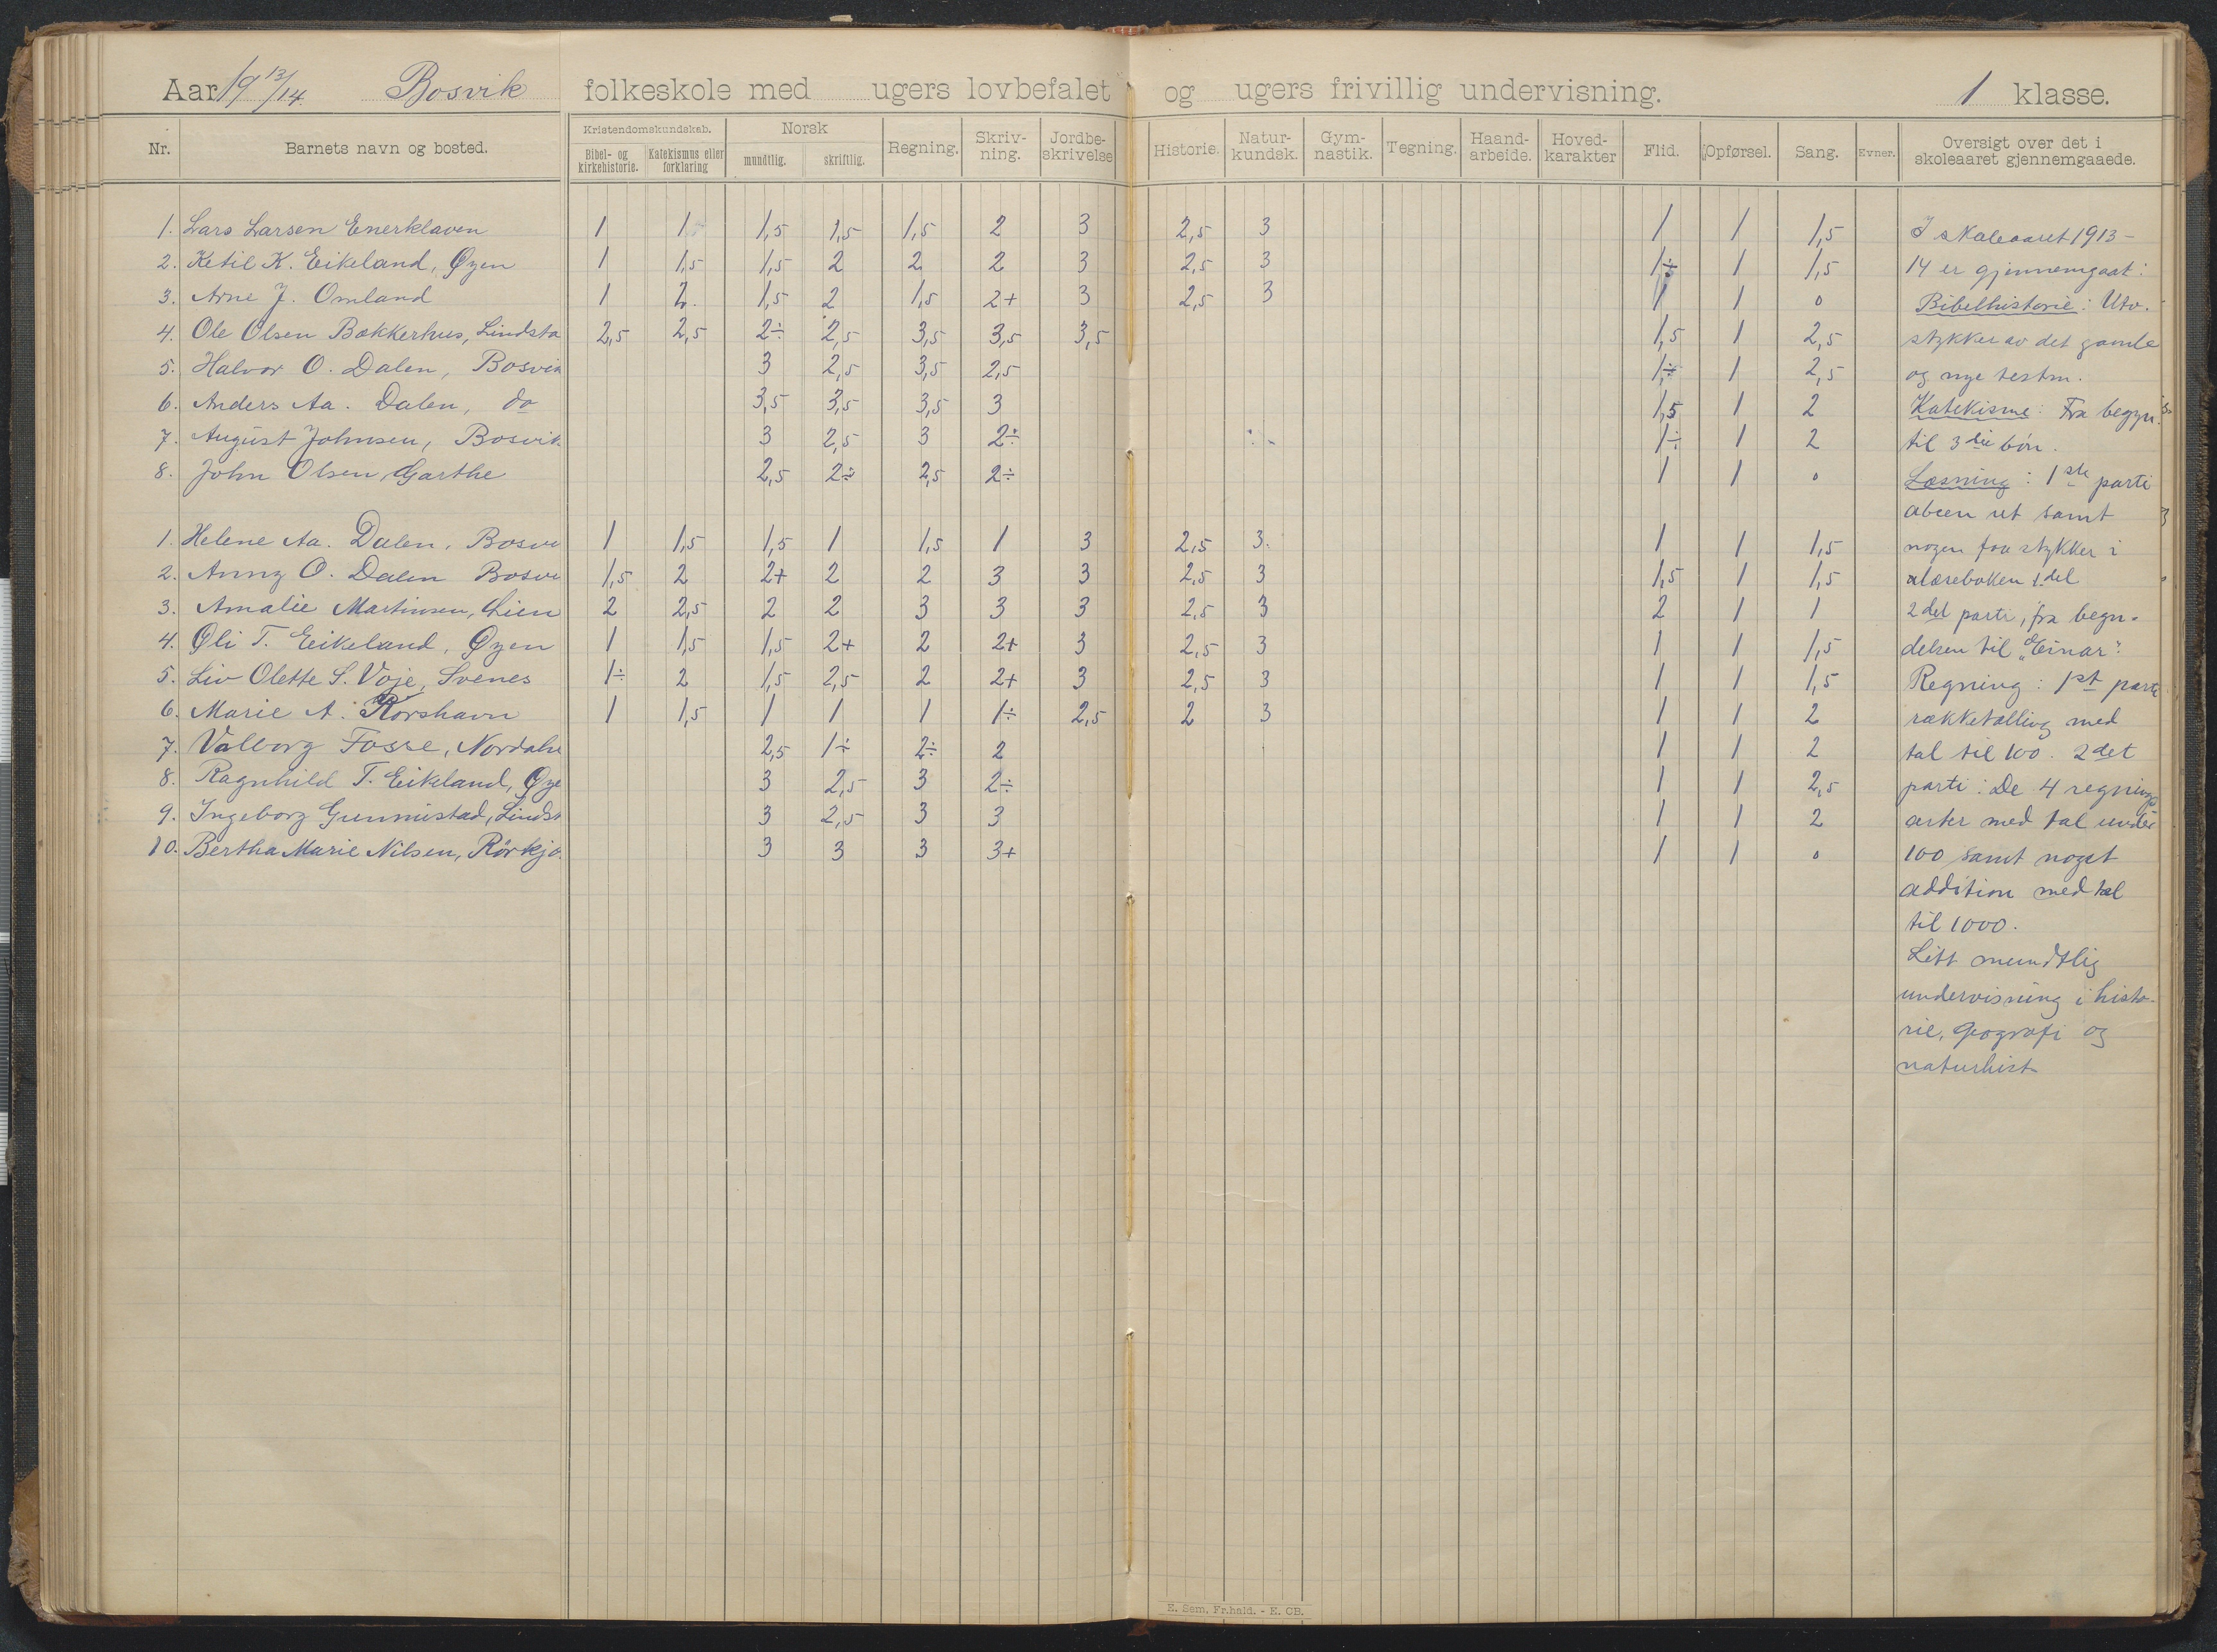 Aar 19 13/14. Bosvik folkeskole med ugers lovbefalet og ugers frivillig undervisning. 1 klasse.
Nr. Barnets navn og bosted. Kristendomskundskab. Bibel- og kirkehistorie. Katekismus eller forklaring Norsk mundtlig. skriftlig. Regning. Skriv-ning. Jordbe-skrivelse Historie. Natur-kundsk. Gym-nastik. Tegning. Haand-arbeide. Hoved-karakter Flid. Opførsel. Sang. Evner. Oversigt over det i skoleaaret gjennemgaaede.
1. Lars Larsen Enerklaven 1 1 1,5 1,5 1,5 2 3 2,5 3 1 1 1,5 I skoleaaret 1913-
2. Ketil K. Eikeland, Øyen 1 1,5 1,5 2 2 2 3 2,5 3 1÷ 1 1,5 14 er gjennemgaat:
3. Arne J. Omland 1 2. 1,5 2 1,5 2+ 3 2,5 3 1 1 0 Bibelhistorie: Utv.
4. Ole Olsen Bakkerhus, Lindsta 2,5 2,5 2÷ 2,5 3,5 3,5 3,5 1,5 1 2,5 stykker av det gamle
5. Halvor O. Dalen, Bosvik 3 2,5 3,5 2,5 1÷ 1 2,5 og nye testm.
6. Anders Aa. Dalen, do 3,5 3,5 3,5 3 1,5 1 2 Katekisme: Fra begyn.
7. August Johnsen, Bosvik 3 2,5 3 2÷ 1÷ 1 2 til 3die bøn.
8. John Olsen Garthe 2,5 2÷ 2,5 2÷ 1 1 0 Læsning: 1ste parti
abcen ut samt
1. Helene Aa. Dalen, Bosvi 1 1,5 1,5 1 1,5 1 3 2,5 3. 1 1 1,5 nogen faa stykker i
2. Anny O. Dalen Bosvi 1,5 2 2+ 2 2 3 3 2,5 3 1,5 1 1,5 læreboken 1.del
3. Amalie Martinsen, Lien 2 2,5 2 2 3 3 3 2,5 3 2 1 1 2det parti, fra begn-
4. Oli T. Eikeland, Øyen 1 1,5 1,5 2+ 2 2+ 3 2,5 3 1 1 1,5 delsen til "Einar".
5. Liv Olette S. Voje, Svenes 1÷ 2 1,5 2,5 2 2+ 3 2,5 3 1 1 1,5 Regning: 1st parti
6. Marie A. Korshavn 1 1,5 1 1 1 1÷ 2,5 2 3 1 1 2 rækketælling med
7. Valborg Fosse, Nordahe 2,5 1÷ 2÷ 2 1 1 2 tal til 100. 2det
8. Ragnhild T. Eikeland, Øye 3 2,5 3 2÷ 1 1 2,5 parti: De 4 regnings
9. Ingeborg Gunmistad, Lindst 3 2,5 3 3 1 1 2 arter med tal under
10. Bertha Marie Nilsen, Rørkjø. 3 3 3 3+ 1 1 0 100 samt noget
addition med tal
til 1000.
Litt mundtlig
undervisning i histo-
rie, geografi og
naturhist.
E. Sem, Fr.hald. - E. CB.